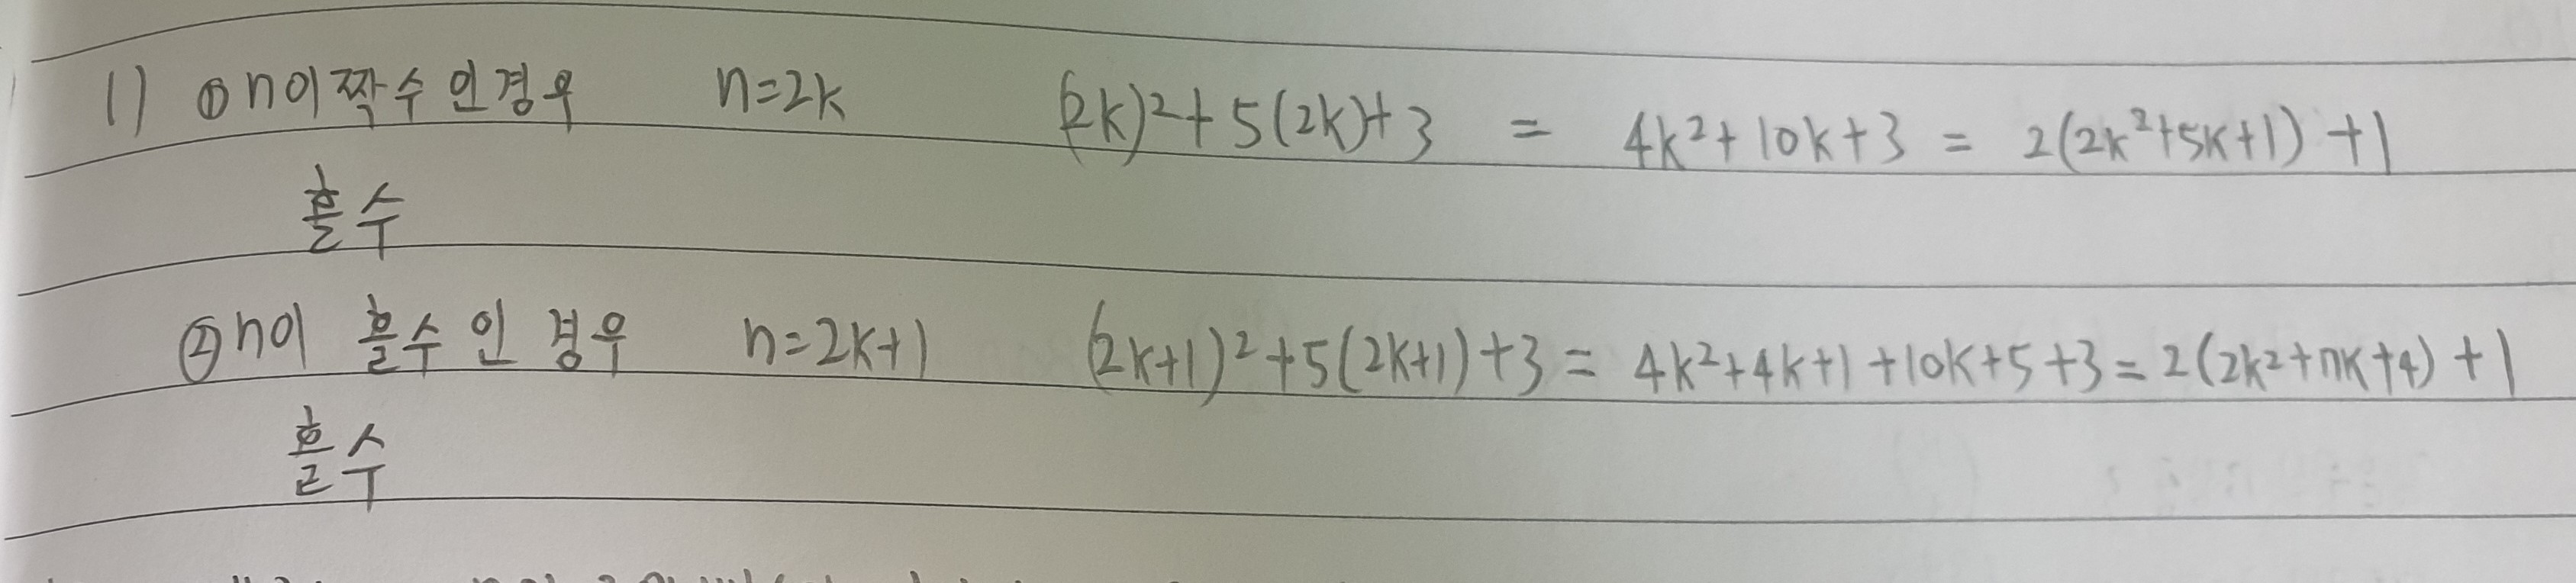 1) ① n이 짝수인 경우 n=2k (2k)²+5(2k)+3 = 4k²+10k+3 = 2(2k²+5k+1)+1
홀수
② n이 홀수인 경우 n=2k+1 (2k+1)²+5(2k+1)+3 = 4k²+4k+1+10k+5+3 = 2(2k²+7k+4)+1
홀수